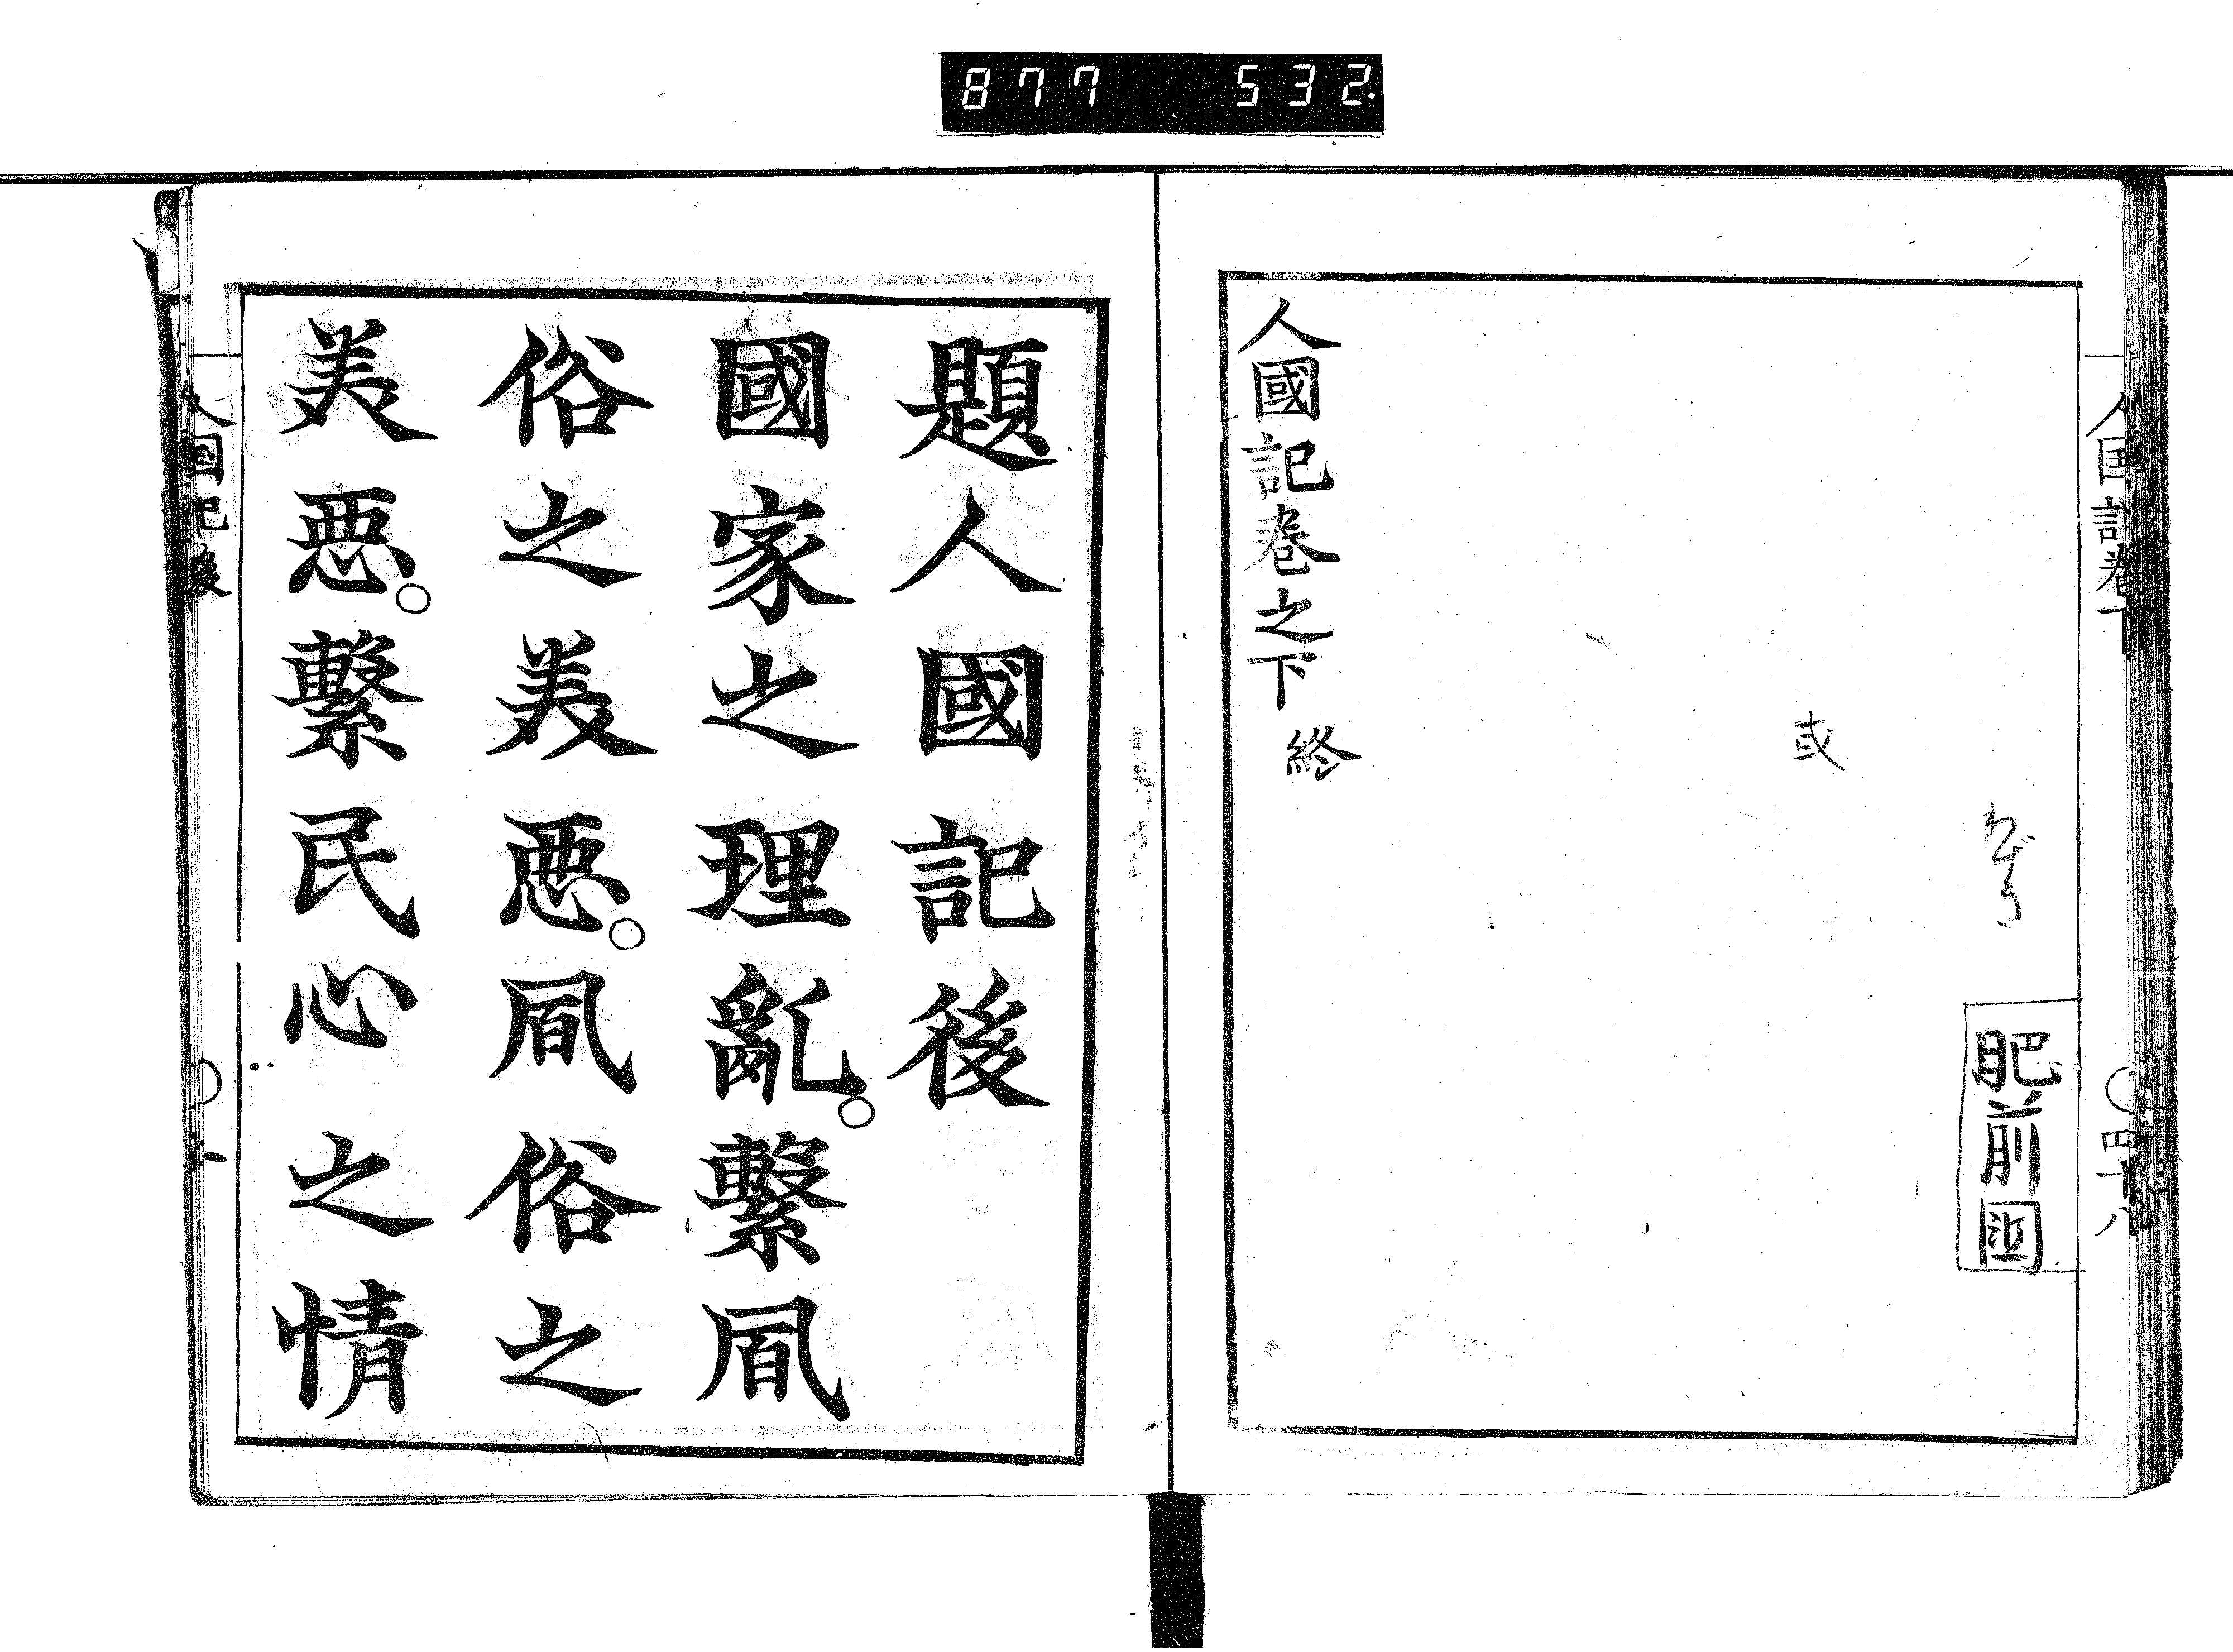 877 532
人国記卷下 〇四十八
肥前國
人國記卷之下 終
題人國記後
國家之理亂。繫凬
俗之美惡。凬俗之
美惡。繫民心之情
人國記後